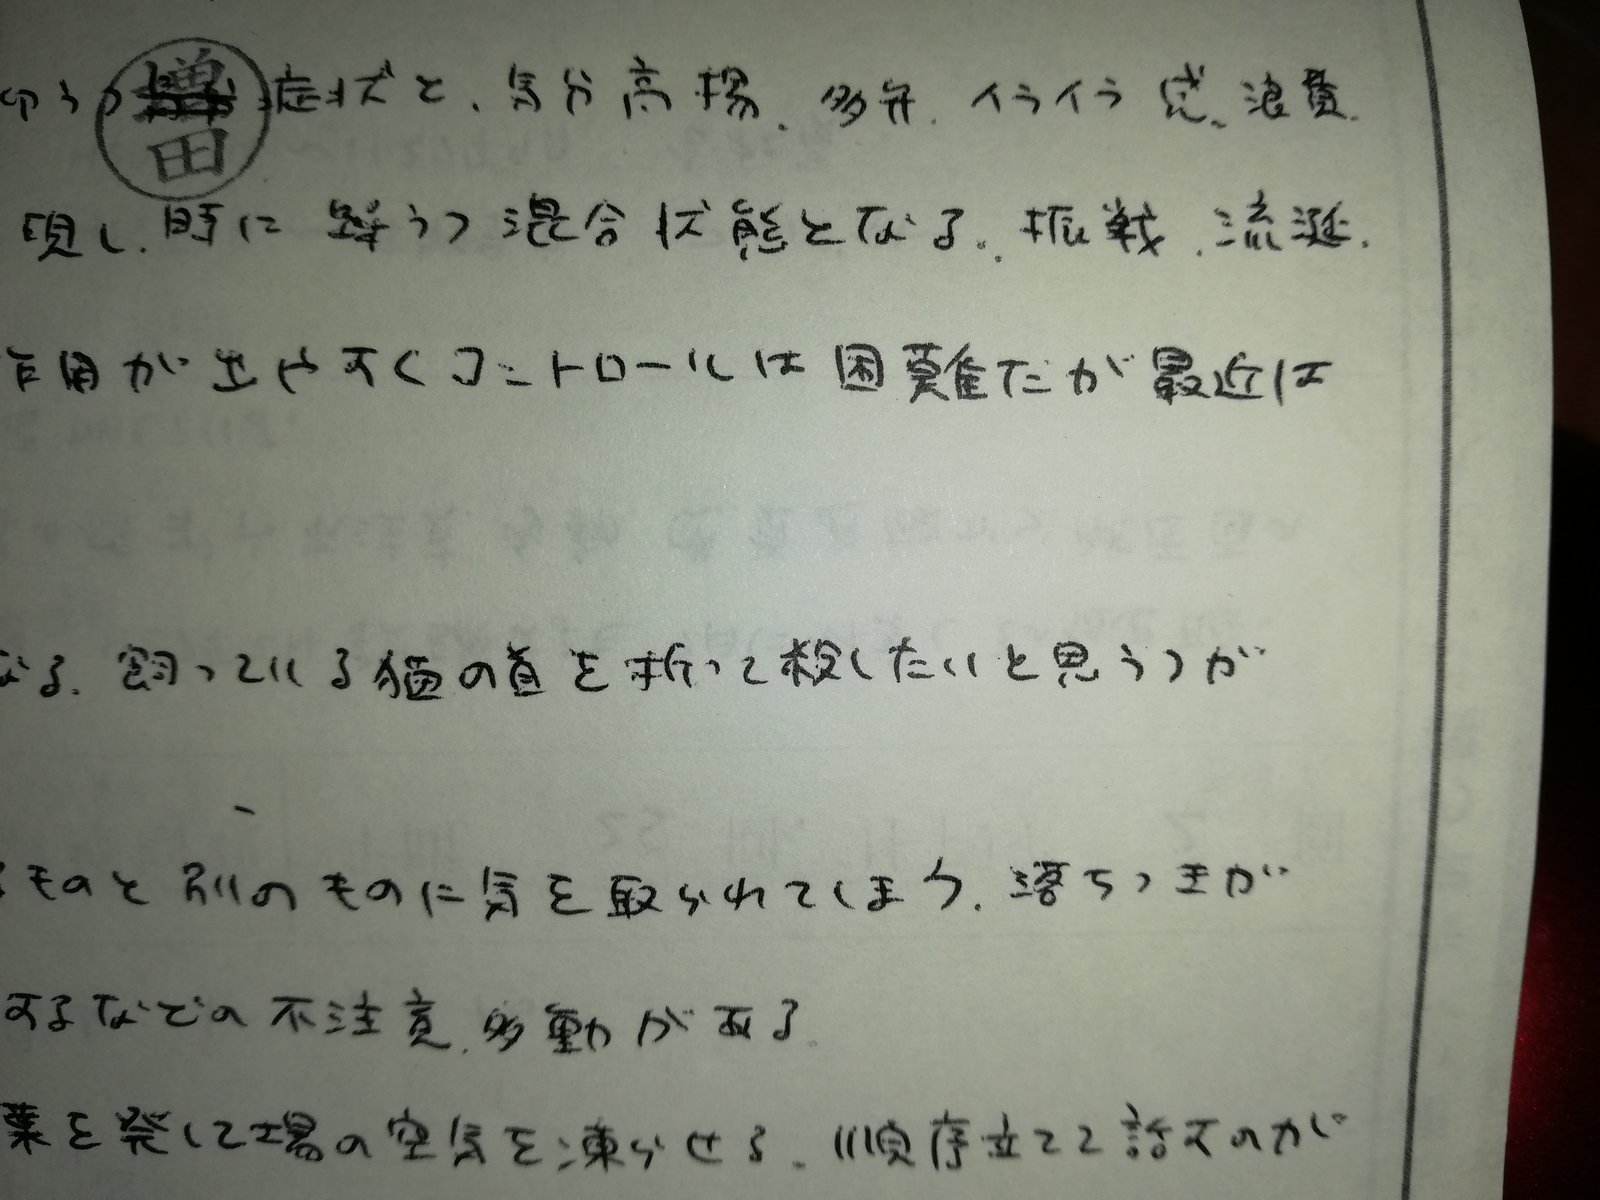 抑うつ 増田 症状と、気分高揚、多弁、イライラ感、浪費、
現し、時に躁うつ混合状態となる。振戦、流涎、
作用が出やすくコントロールは困難だが最近は
なる。飼っている猫の首を折って殺したいと思うつが
るものと別のものに気を取られてしまう。落ちつきが
するなどの不注意、多動がある。
葉を発して場の空気を凍らせる。順序立てて話すのが